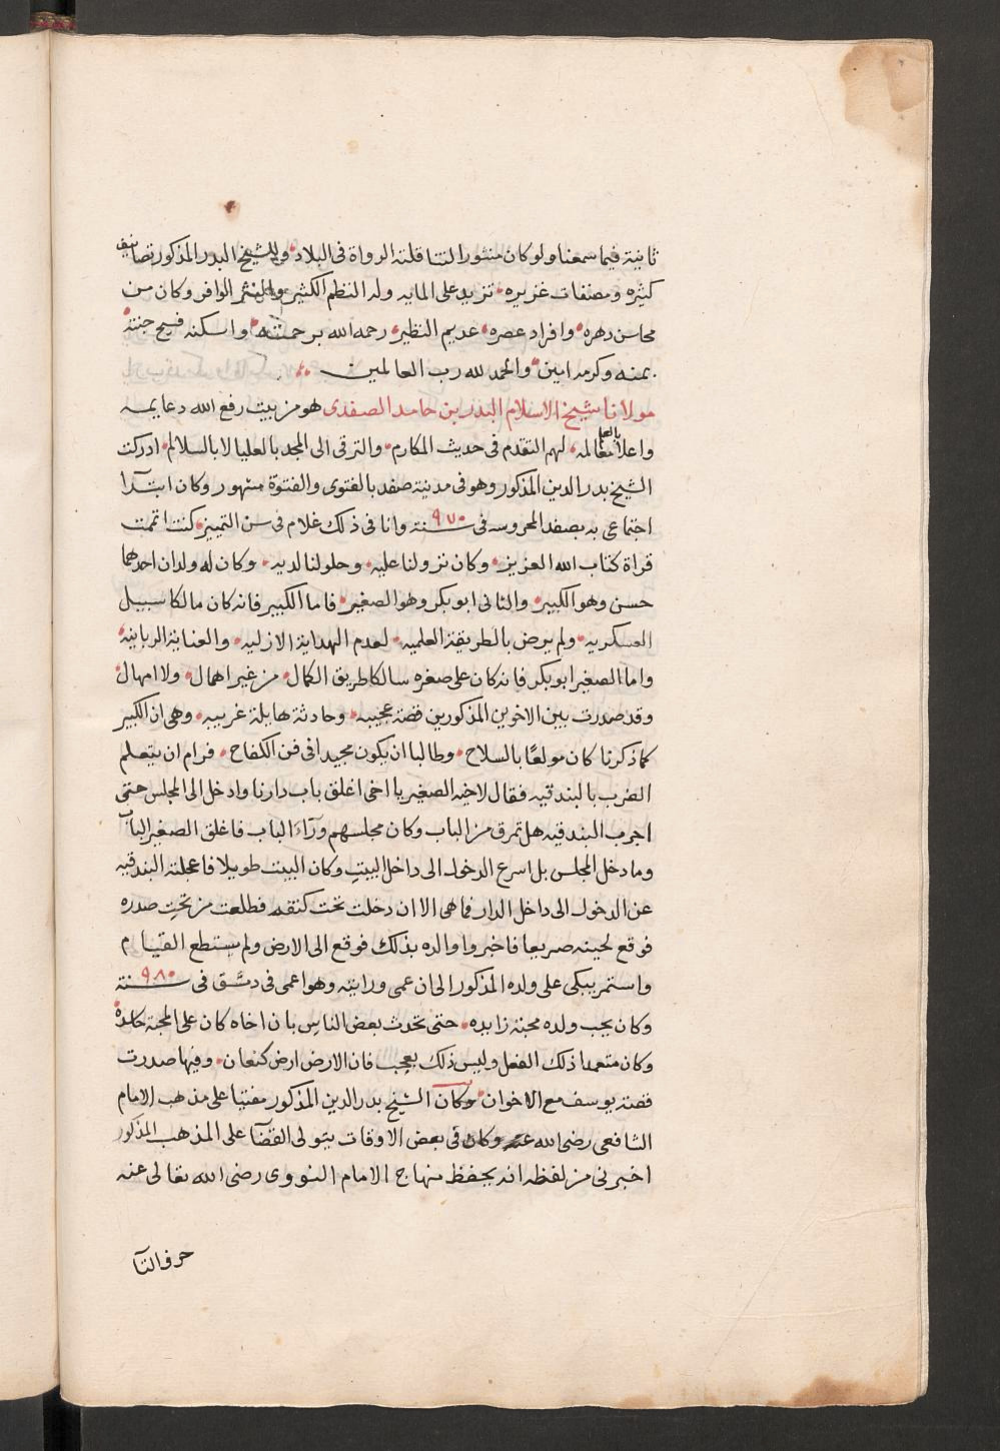 ثانية فيما سمعنا ولو كان منثورا لتناقلته الرواة فى البلاد وللشيخ البدر المذكور تصانيف
كثيره ومصنفات غزيره تزيد على المايه وله النظم الكثير والنثر الوافر وكان من
محاسن دهره وافراد عصره عديم النظير رحمه الله برحمته واسكنه فسيح جنته
بمنه وكرمه امين والحمد لله رب العالمين
مولانا شيخ الاسلام البدر بن حامد الصفدى هو من بيت رفع الله دعايمه
واعلا بالعلم معالمه لهم التقدم فى حديث المكارم والترقى الى المجد بالعليا لا بالسلالم ادركت
الشيخ بدر الدين المذكور وهو فى مدينة صفد بالفتوى والفتوة مشهور وكان ابتدآ
اجتماعى به بصفد المحروسه فى سنة ٩٧٠ وانا فى ذلك غلام فى سن التمييز كنت اتممت
قراة كتاب الله العزيز وكان نزولنا عليه وحلولنا لديه وكان له ولدان احدهما
حسن وهو الكبير والثانى ابو بكر وهو الصغير فاما الكبير فانه كان مالكا سبيل
العسكريه ولم يرض بالطريقة العلميه لعدم الهداية الازليه والعناية الربانية
واما الصغير ابو بكر فانه كان على صغره سالكا طريق الكمال من غير اهمال ولا امهال
وقد صدرت بين الاخوين المذكورين قصة عجيبه وحادثة هايلة غريبه وهى ان الكبير
كما ذكرنا كان مولعًا بالسلاح وطالبا ان يكون مجيدا فى فن الكفاح فرام ان يتعلم
الضرب بالبندقيه فقال لاخيه الصغير يا اخى اغلق باب دارنا وادخل الى المجلس حتى
اجرب البندقيه هل تمرق من الباب وكان مجلسهم ورآء الباب فاغلق الصغير الباب
وما دخل المجلس بل اسرع الدخول الى داخل البيت وكان البيت طويلا فاعجلته البندقيه
عن الدخول الى داخل الدار فما هى الا ان دخلت تحت كتفه فطلعت من تحت صدره
فوقع لحينه صريعا فاخبروا والده بذلك فوقع الى الارض ولم يستطع القيام
واستمر يبكى على ولده المذكور الى ان عمى ورايته وهو اعمى فى دمشق فى سنة ٩٨٠
وكان يحب ولده محبة زايده حتى تحدث بعض الناس بان اخاه كان على المحبة حاسده
وكان متعمدا ذلك الفعل وليس ذلك بعجب فان الارض ارض كنعان وفيها صدرت
قصة يوسف مع الاخوان وكان الشيخ بدر الدين المذكور مفتيا على مذهب الامام
الشافعى رضى الله عنه وكان فى بعض الاوقات يتولى القضآ على المذهب المذكور
اخبرنى من لفظه انه يحفظ منهاج الامام النووى رضى الله تعالى عنه
حرف التآ